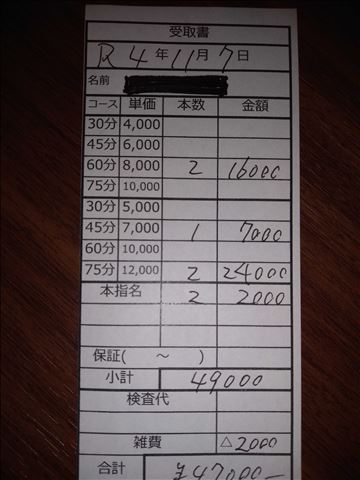 受取書
R 4年 11月 7日
名前
コース 単価 本数 金額
30分 4,000
45分 6,000
60分 8,000 2 16000
75分 10,000
30分 5,000
45分 7,000 1 7000
60分 10,000
75分 12,000 2 24000
本指名 2 2000
保証( ～ )
小計 49000
検査代
雑費 △2000
合計 ¥47000-